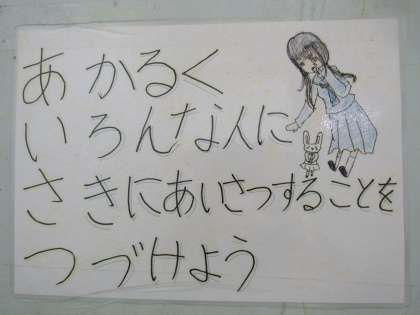 あかるく
いろんな人に
さきにあいさつすることを
つづけよう